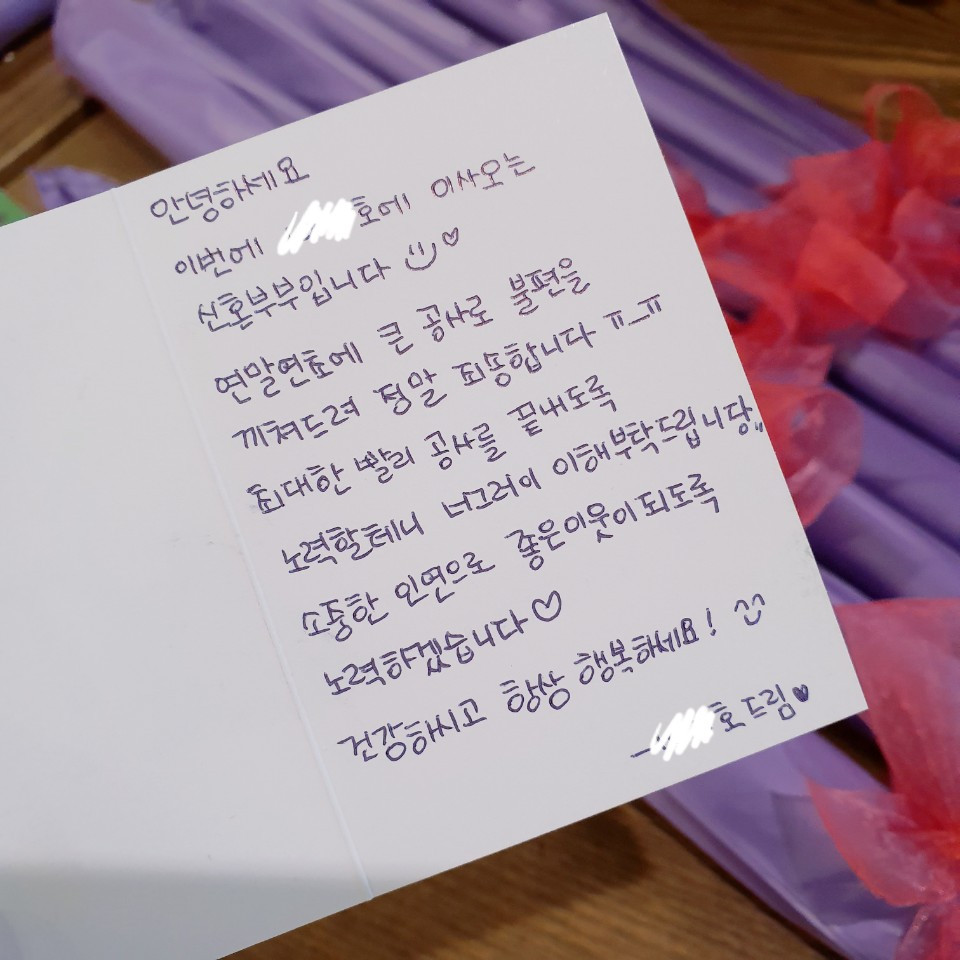 안녕하세요
이번에 호에 이사오는
신혼부부입니다 ♡
연말연초에 큰 공사로 불편을
끼쳐드려 정말 죄송합니다 ㅠ_ㅠ
최대한 빨리 공사를 끝내도록
노력할테니 너그러이 이해부탁드립니당,,
소중한 인연으로 좋은이웃이되도록
노력하겠습니다♡
건강하시고 항상 행복하세요! ^^
- 호 드림♥